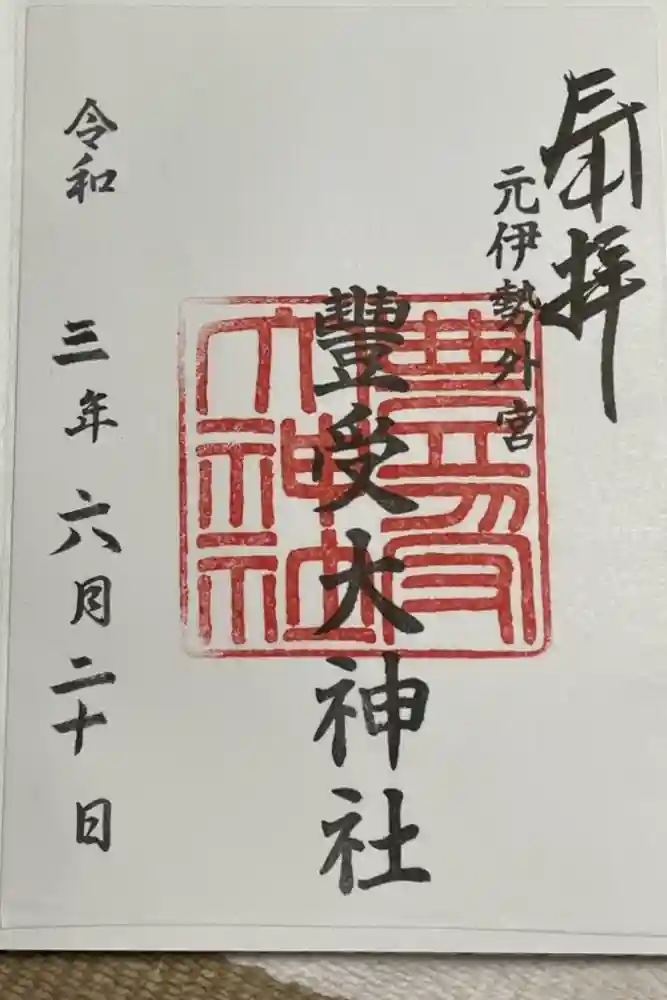 奉拝
元伊勢外宮
豐受大神社
豊受大神社
令和三年六月二十日